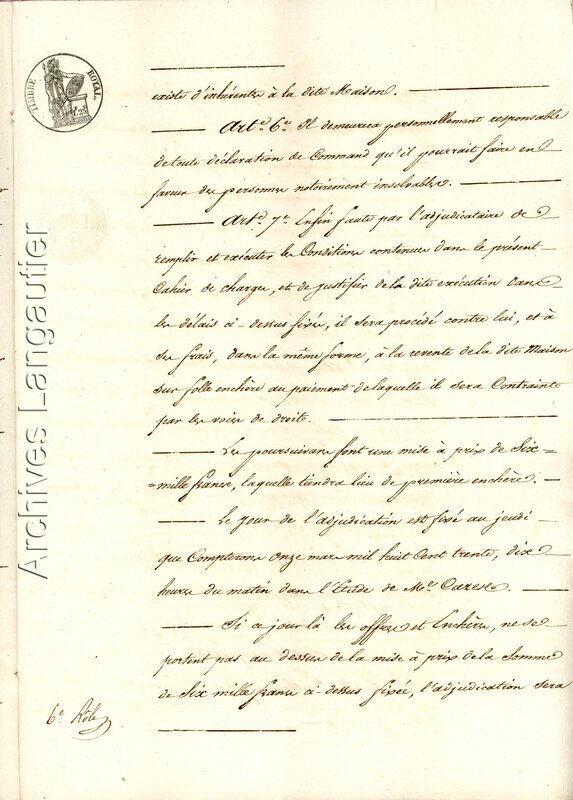 TIMBRE ROYAL.
existe d'inhérents à la dite Maison.
Art.e 6.e Il demeurera personnellement responsable
de toute déclaration de Command qu'il pourrait faire en
faveur des personnes notoirement insolvables.
Art.e 7.e Enfin faute par l'adjudicataire de
remplir et exécuter les Conditions contenues dans le présent
Cahier de charges, et de justifier de la dite exécution dans
les délais ci-dessus fixés, il sera procédé contre lui, et à
ses frais, dans la même forme, à la revente de la dite Maison
sur folle enchère au paiement de laquelle il sera Contraint
par les voies de droit.
Les poursuivans font une mise à prix de Six
=mille francs, laquelle tiendra lieu de première enchère.
Le jour de l'adjudication est fixé au jeudi
que Compterons onze mars mil huit Cent trente, dix
heures du matin dans l'Etude de M.e
Si ce jour là les offres et Enchères, ne se
portent pas au dessus de la mise à prix de la Somme
de Six mille francs ci-dessus fixée, l'adjudication sera
6.e Rôle
Archives Langautier